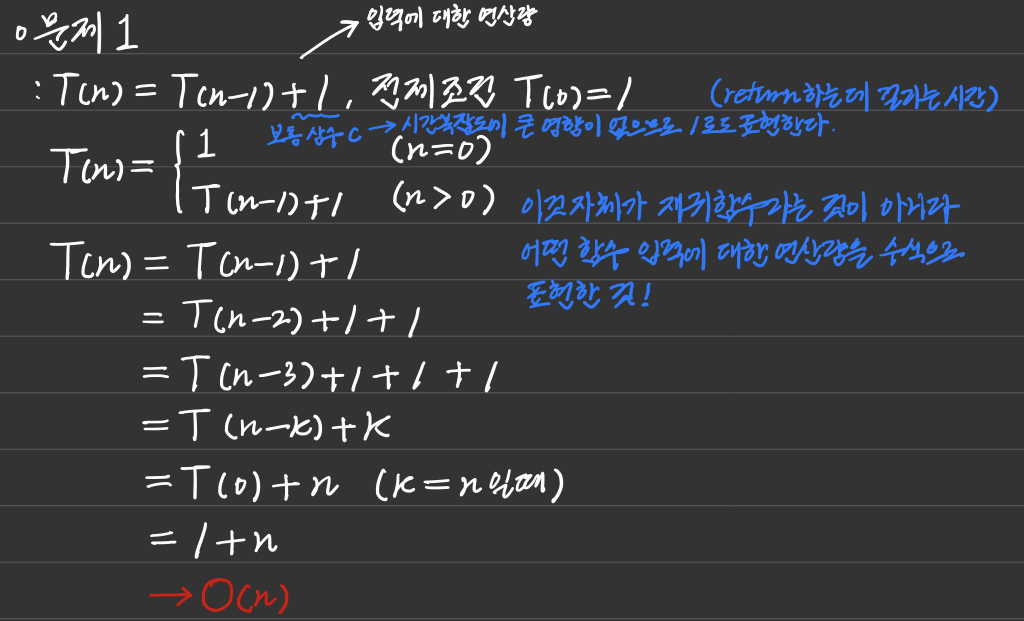 ○문제 1
→ 입력에 대한 연산량
: T(n) = T(n-1)+1, 전제조건 T(0)=1 (return하는데 걸리는 시간)
보통 상수 C → 시간복잡도에 큰 영향이 없으므로 1로도 표현한다.
T(n) = { 1 (n=0)
T(n-1)+1 (n>0)
이것자체가 재귀함수라는 것이 아니라
어떤 함수 입력에 대한 연산량을 수식으로
표현한 것!
T(n) = T(n-1)+1
= T(n-2)+1+1
= T(n-3)+1+1+1
= T(n-k)+k
= T(0)+n (k=n일때)
= 1+n
→ O(n)